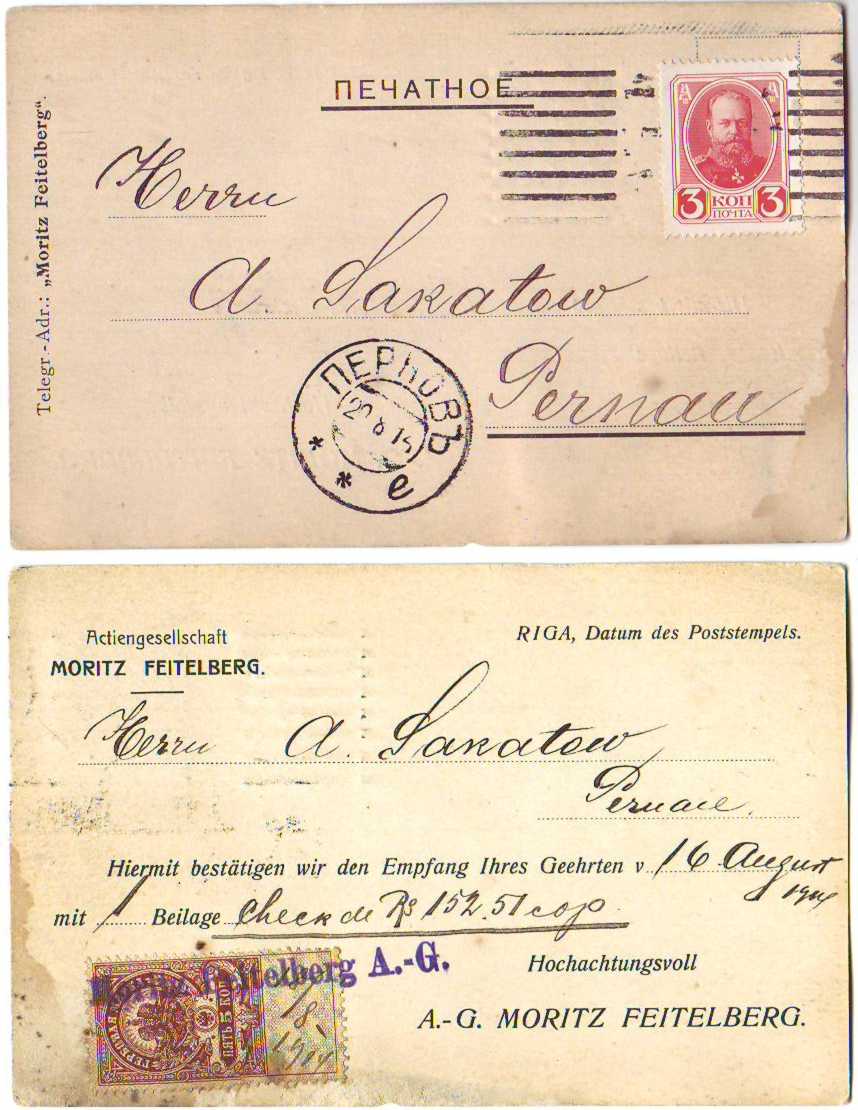 ПЕЧАТНОЕ
Telegr.-Adr.: „Moritz Feitelberg“.
КОП
3 3
ПОЧТА
Herrn
A. Sakatow
Pernau
ПЕРНОВЪ
е
Actiengesellschaft
MORITZ FEITELBERG.
RIGA, Datum des Poststempels.
Herrn A. Sakatow
Pernau.
Hiermit bestätigen wir den Empfang Ihres Geehrten v. 16 August
1914
mit 1 Beilage check de Rs 152.51 cop
Moritz Feitelberg A.-G.
Hochachtungsvoll
A.-G. MORITZ FEITELBERG.
ГЕРБОВАЯ МАРКА
ПЯТЬ 5 КОП
18
1914